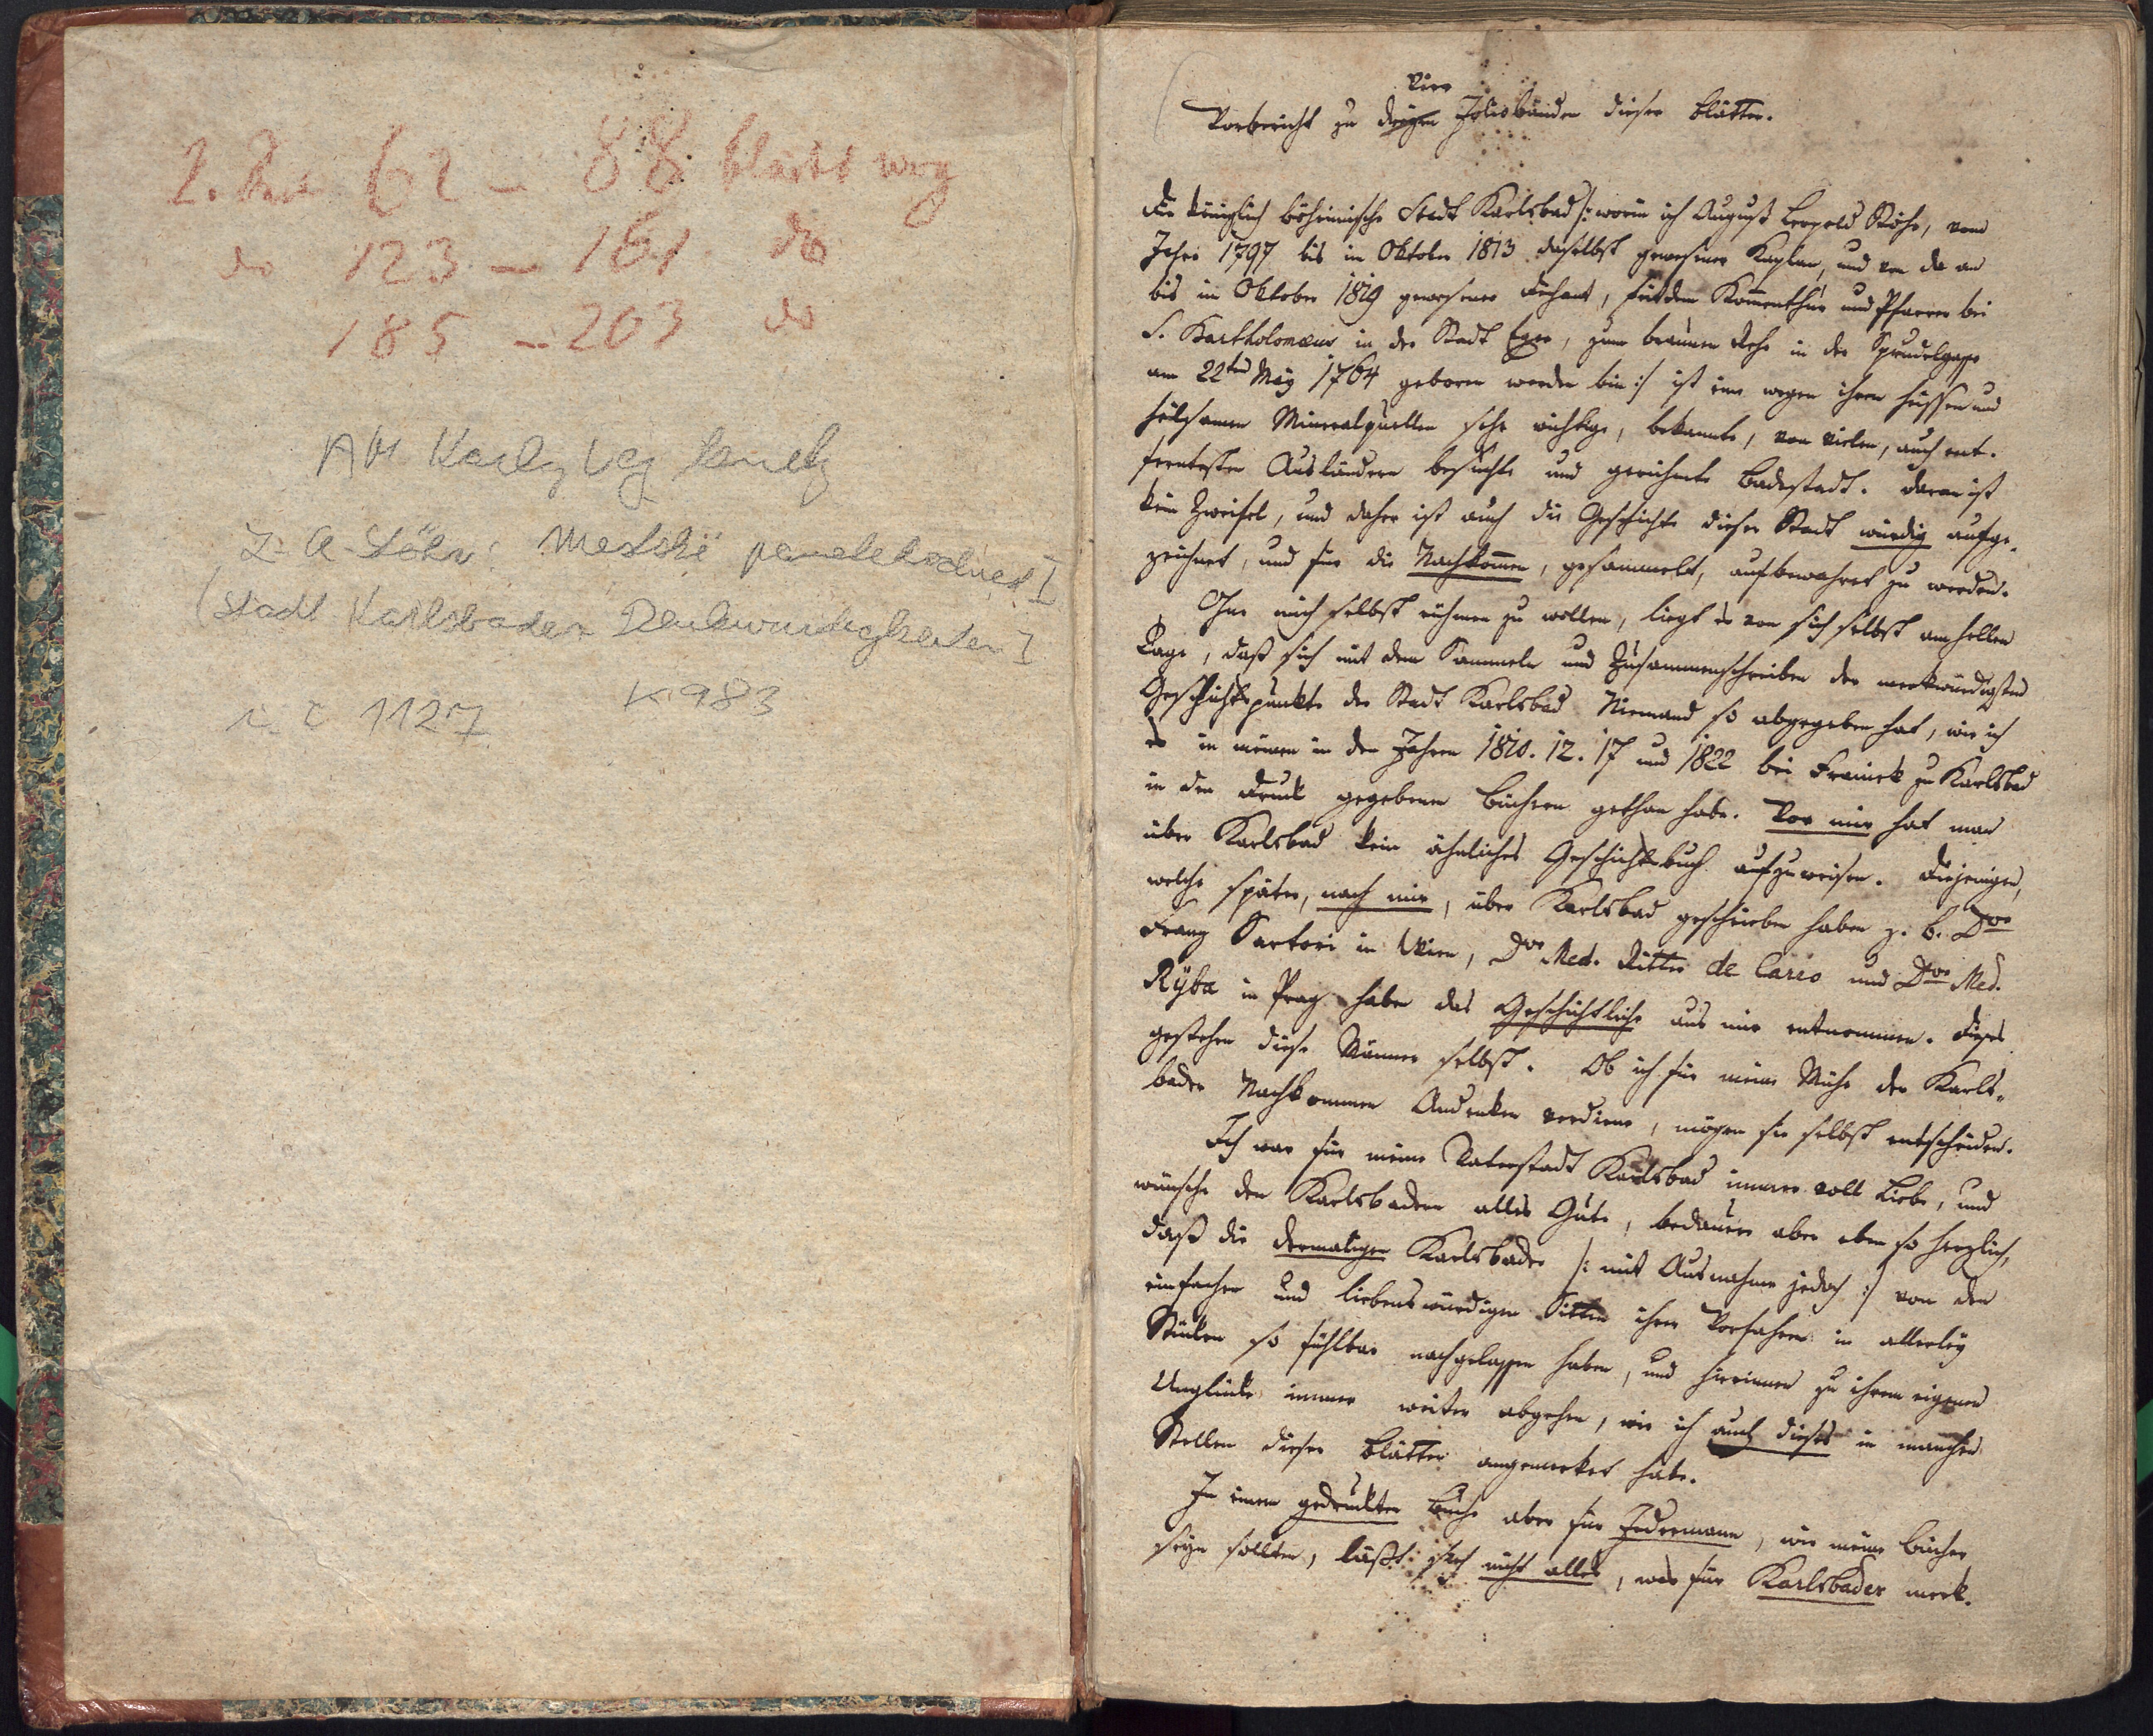 62 - 88 bleibt weg
do 123 - 161 do
185 - 203 do
AM Karlovy Vary
Stöhr: Městské pamětihodnosti I
(Stadt Karlsbader Denkwürdigkeiten I
i. č 1127 K 983
vier
Vorbericht zu Foliobänden dieser Blätter.
Die königlich böhmische Stadt Karlsbad /: worin ich August Leopold Stöhr, vom
Jahre 1797 bis im Oktober 1813 daselbst gewesener Kaplan, und von da an
bis im Oktober 1819 gewesener Dechant, seitdem Kommenthur und Pfarrer bei
S. Bartholomæus in der Stadt Eger, zum braunen Rehe in der Sprudelgasse
am 22ten May 1764 geboren worden bin :/ ist eine wegen ihren heissen und
heilsamen Mineralquellen sehr wichtige, bekannte, von vielen, auch ent-
ferntesten Ausländern besuchte und gerühmte Badestadt. Daran ist
kein Zweifel, und daher ist auch die Geschichte dieser Stadt würdig aufge-
zeichnet, und für die Nachkommen, gesammelt, aufbewahret zu werden.
Ohne mich selbst rühmen zu wollen, liegt es von sich selbst am hellen
Tage, daß sich mit dem Sammeln und Zusammenschreiben der merkwürdigsten
Geschichtspunkte der Stadt Karlsbad Niemand so abgegeben hat, wie ich
es in meinen in den Jahren 1810. 12. 17 und 1822 bei Franieck zu Karlsbad
in den Druck gegebenen Büchern gethan habe. Vor mir hat man
über Karlsbad kein ähnliches Geschichtbuch aufzuweisen. Diejenigen,
welche später, nach mir, über Karlsbad geschrieben haben z. B. Dor
Franz Sartori in Wien, Dor Med. Ritter de Carro und Dor Med.
Ryba in Prag haben das Geschichtliche aus mir entnommen. Dieses
gestehen diese Männer selbst. Ob ich für meine Mühe der Karls-
bader Nachkommen Andenken verdiene, mögen sie selbst entscheiden.
Ich war für meine Vaterstadt Karlsbad immer voll Liebe, und
wünsche den Karlsbadern alles Gute, bedauere aber eben so herzlich,
daß die dermaligen Karlsbader /: mit Ausnahme jedoch :/ von den
einfachen und liebenswürdigen Sitten ihrer Vorfahren in allerley
Stücken so fühlbar nachgelassen haben, und hierinnen zu ihrem eigenen
Unglücke immer weiter abgehen, wie ich auch dieses in manchen
Stellen dieser Blätter angemerket habe.
In einem gedruckten Buche aber für Jedermann, wie meine Bücher
seyn sollten, läßt sich nicht alles, was für Karlsbader merk-